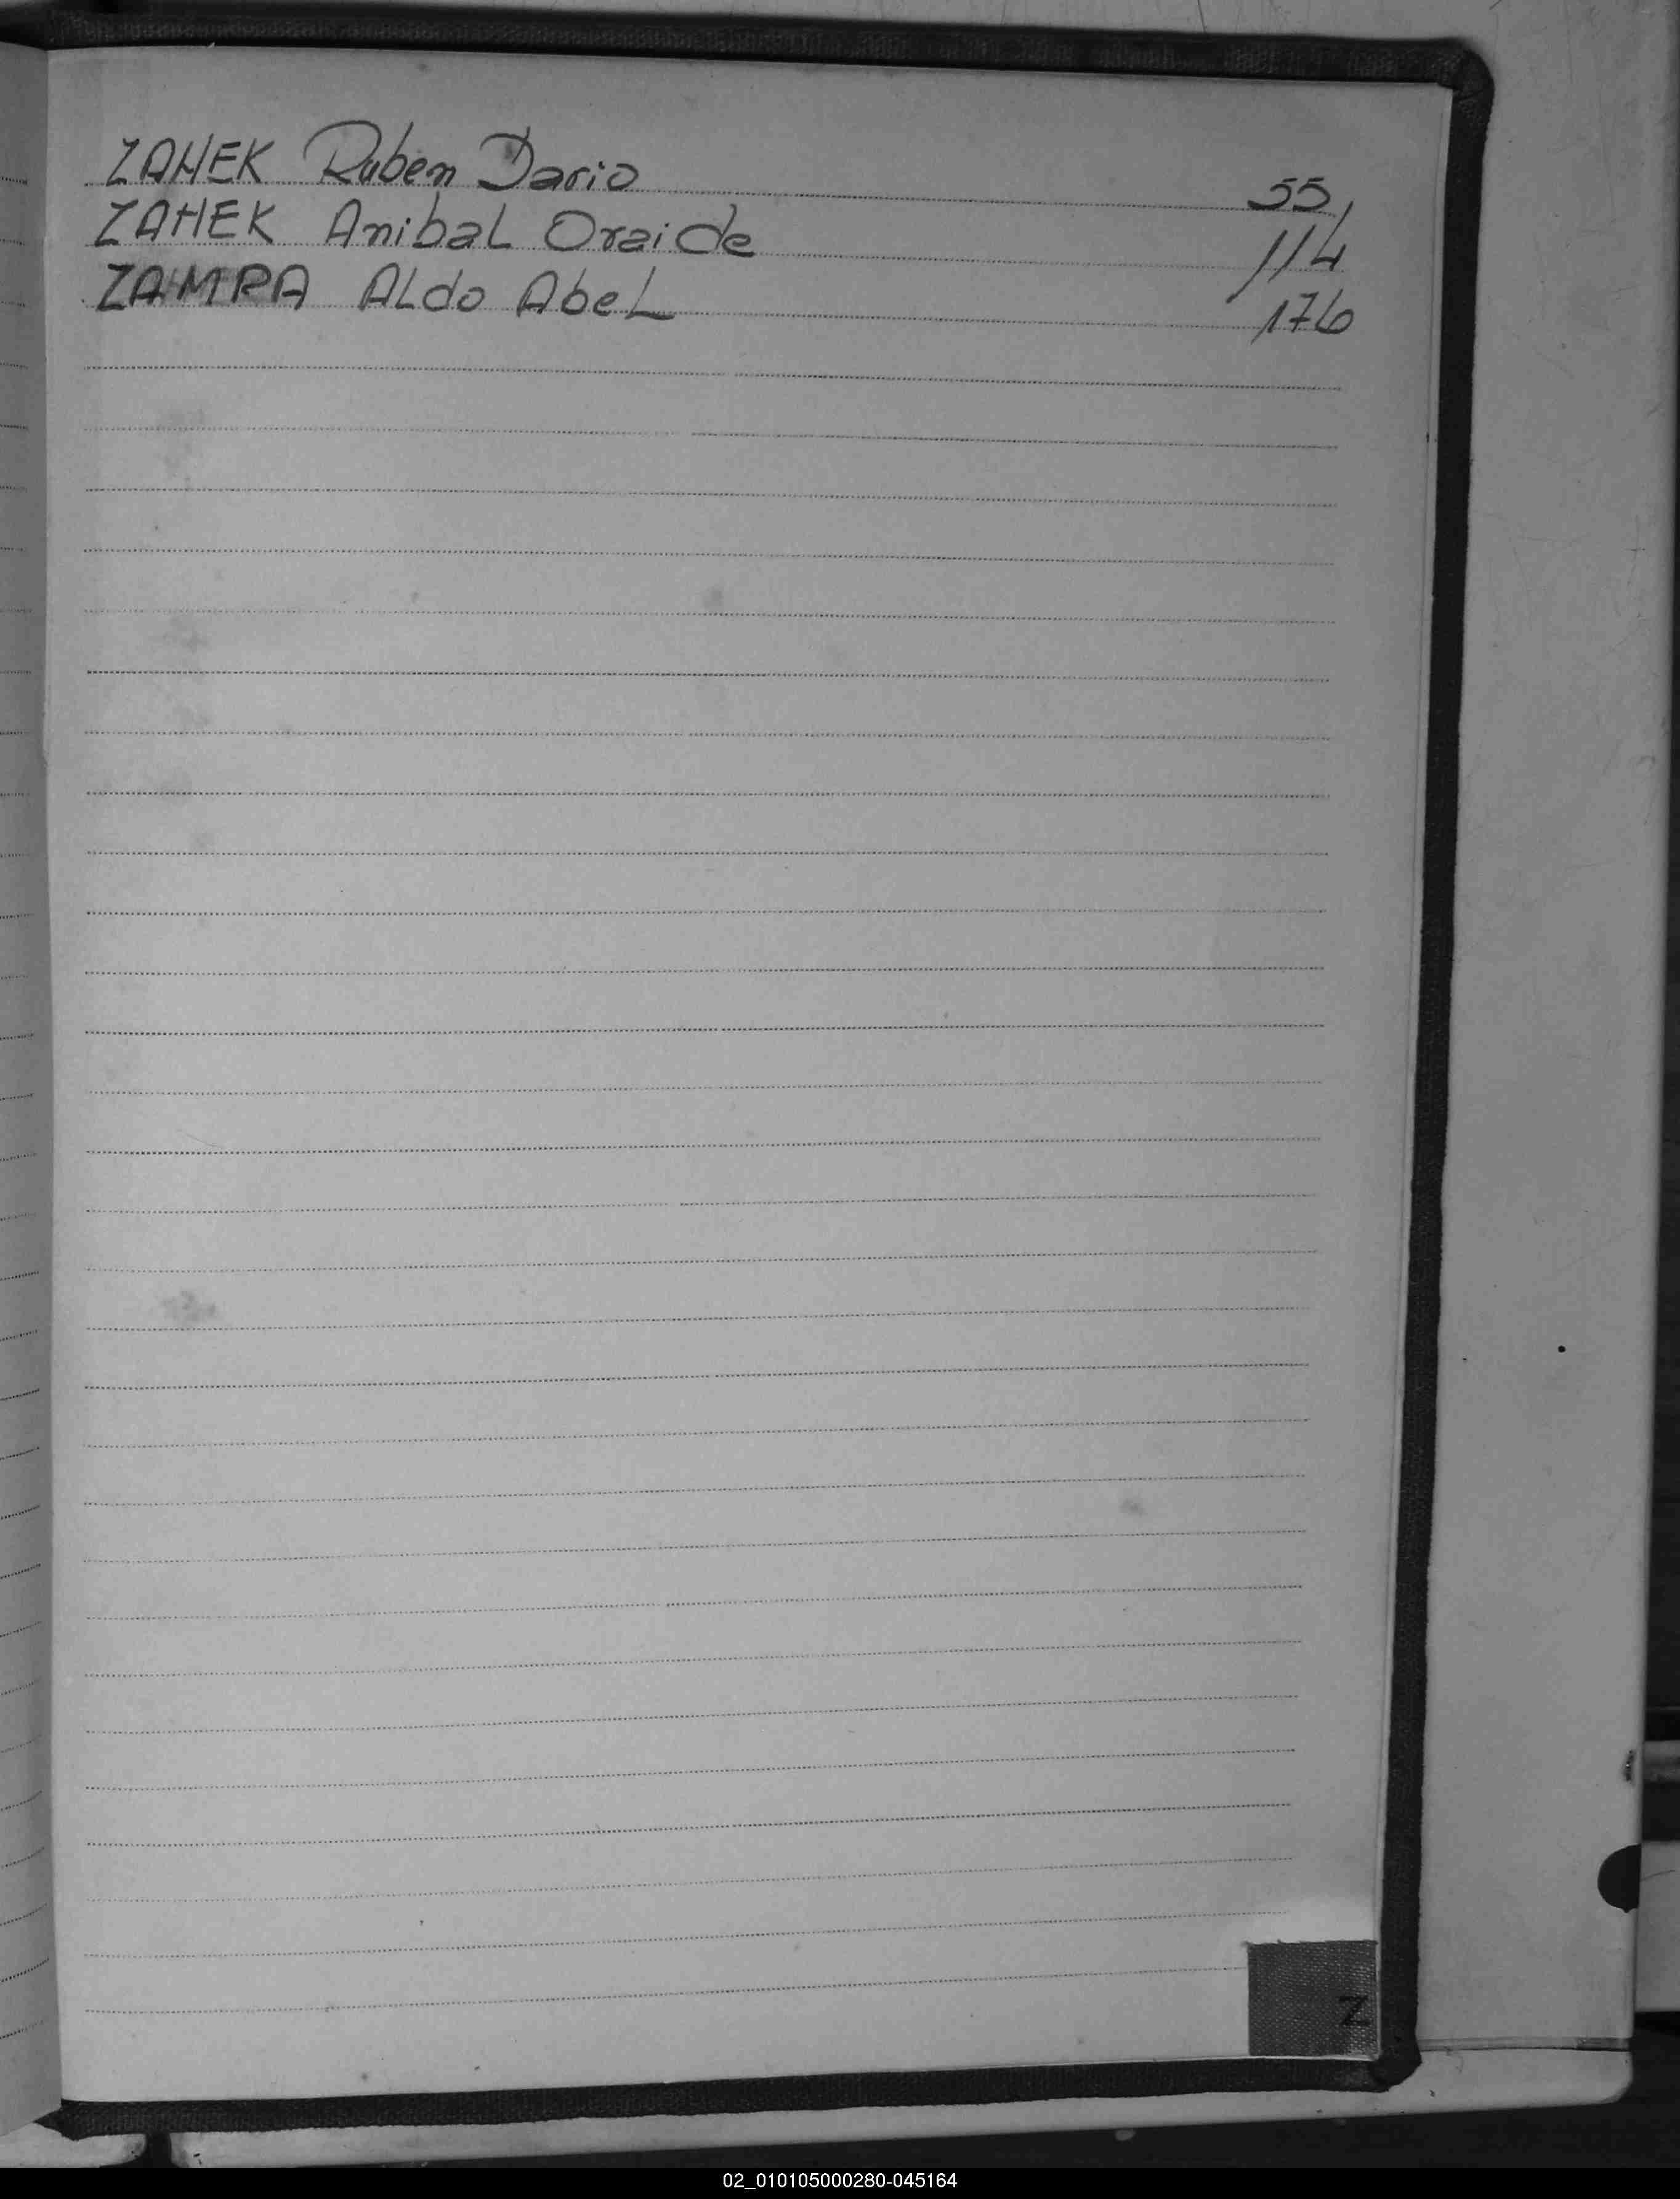 ZAHEK Ruben Dario 55
ZAHEK Anibal Oraide 114
ZAMPA Aldo Abel 176
Z
02_010105000280-045164